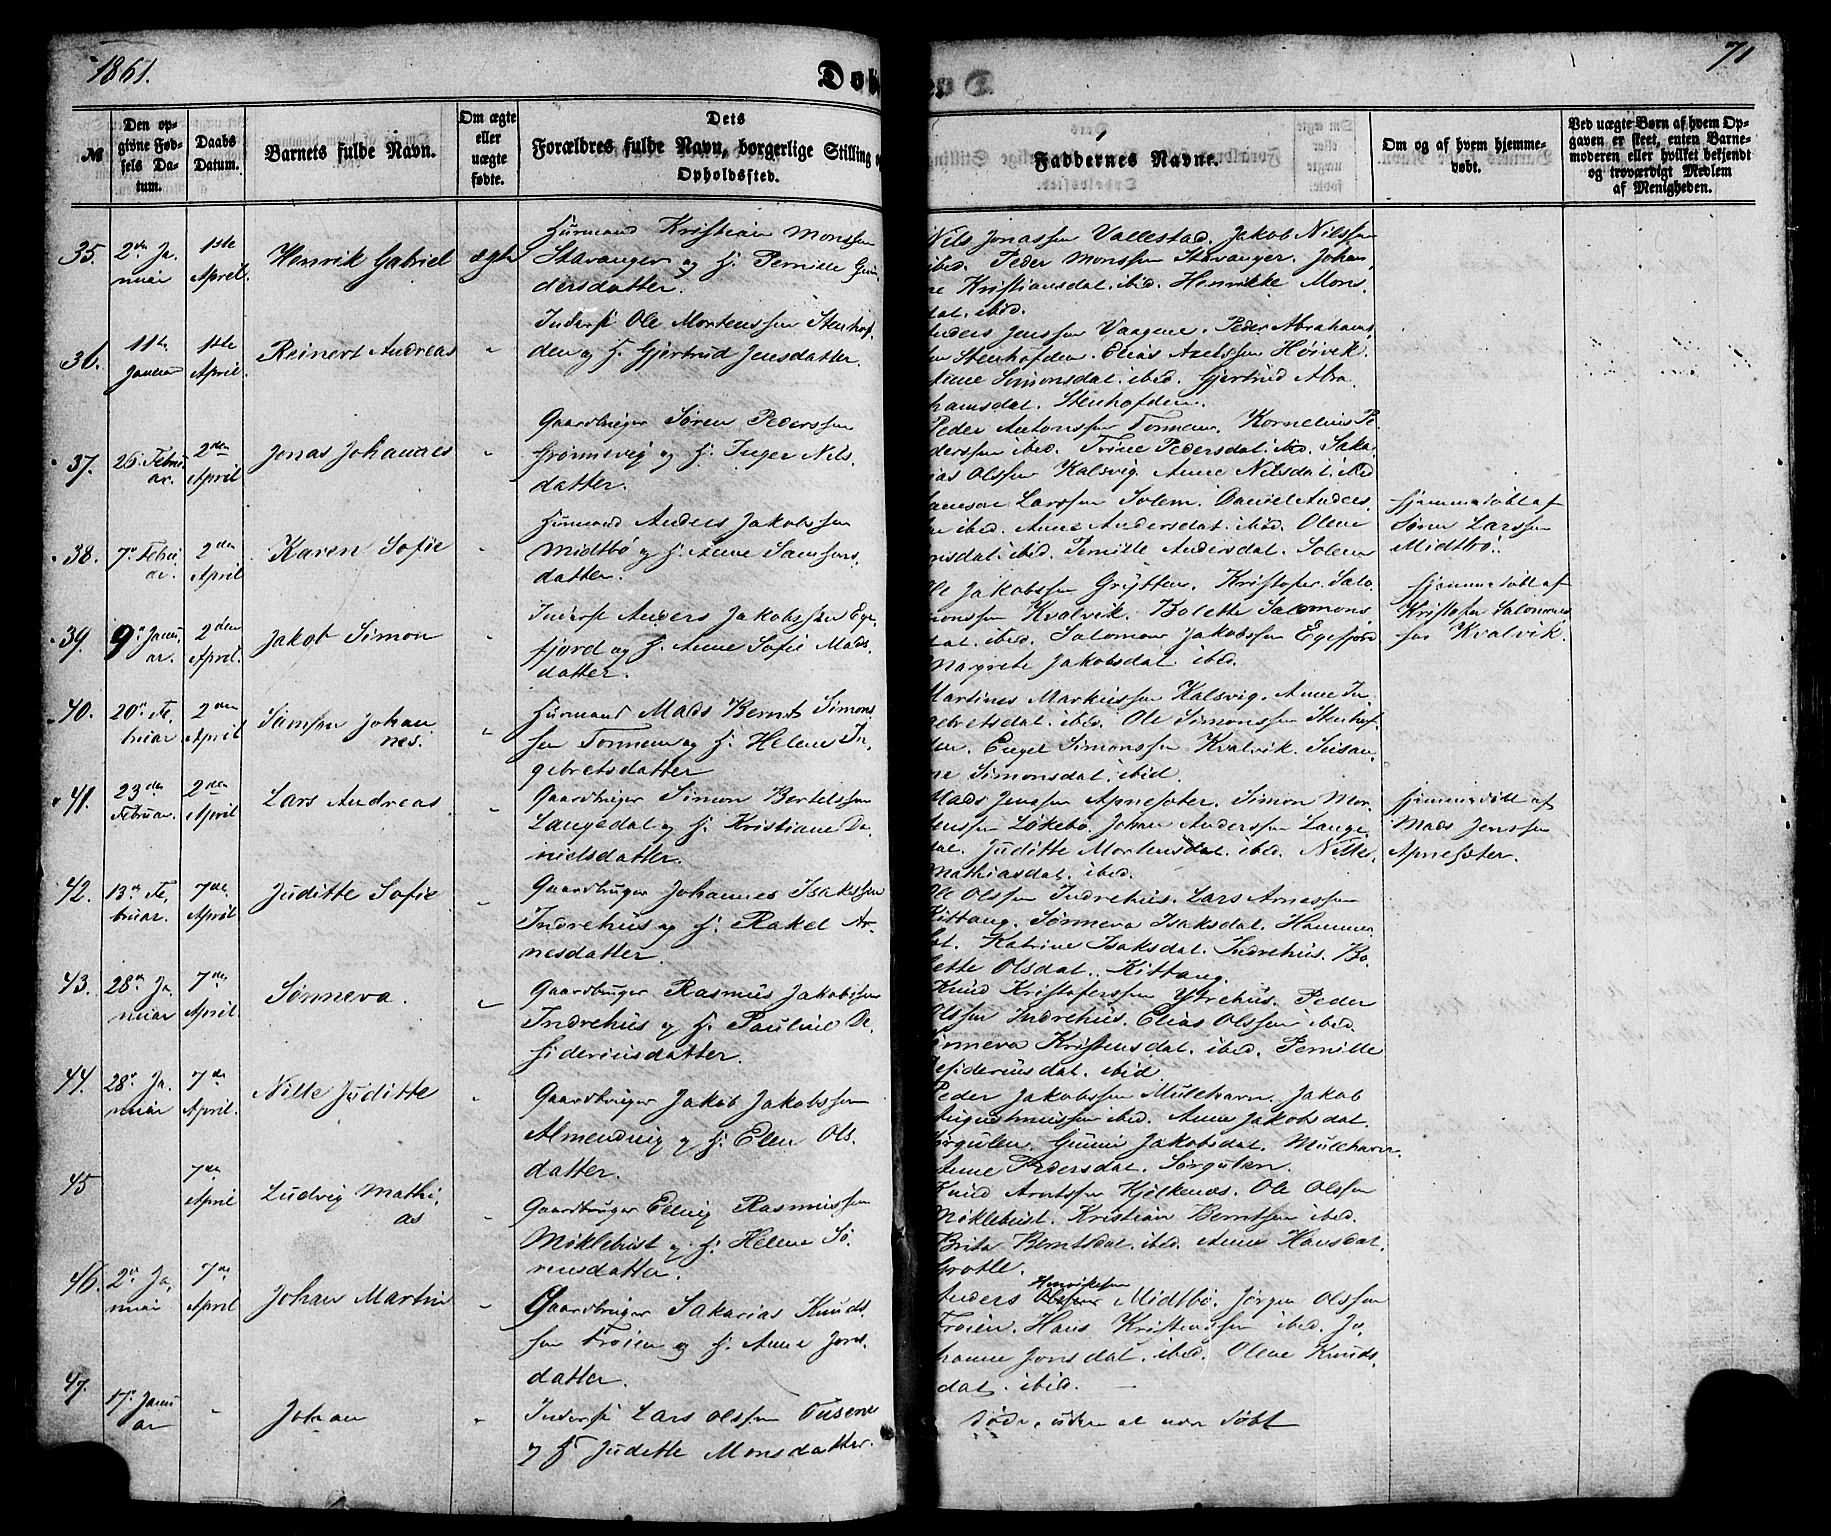 1861.
Døb
71
№
Den op-
givne Fød-
sels Da-
tum.
Daabs
Datum.
Barnets fulde Navn.
Om ægte
eller
uægte
fødte.
Dets
Forældres fulde Navn, borgerlige Stilling o
Opholdssted.
Faddernes Navne.
Om og af hvem hjemme-
døbt.
Ved uægte Børn af hvem Op-
gaven er skeet, enten Barne-
moderen eller hvilket bekjendt
og troværdigt Medlem
af Menigheden.
35. 2den Ja-
nuar
1ste
April.
Henrik Gabriel
ægte
Huusmand Kristian Monssen
Stavanger og H. Pernille Gun
dersdatter.
Nils Jonassen Vallestad. Jakob Nilssen
ibid. Peder Monssen Stavanger. Johan,
ne Kristiansdat. ibid. Henrikke Mons,
dat. ibid.
36. 11te
Januar
1ste
April.
Reinert Andreas
"
Inderst Ole Mortenssen Stenhof,
den og H. Gjertrud Jensdatter.
Anders Jenssen Vaagene. Peder Abrahams,
sen Stenhofden. Elias Axelssen Høivik.
Anne Simonsdat. ibid. Gjertrud Abra
hamsdat. Stenhofden.
37. 26. Febru
ar.
2den
April
Jonas Johannes
"
Gaardbruger Søren Pederssen
Grønnevig og H. Inger Nils,
datter.
Peder Antonssen Tonnem. Kornelius Pe
derssen ibid. Trine Pedersdat. ibid. Saka,
rias Olssen Kalsvig. Anne Nilsdat. ibid
38. 7de Febru
ar.
2den
April
Karen Sofie
"
Huusmand Anders Jakobssen
Midtbø og H. Anne Samsons,
datter.
Samson Larssen Solem. Daniel Anders,
sen ibid. Anne Andersdat. ibid. Olene
nsdat. ibid. Pernille Andersdat. Solem
Hjemmedøbt af
Søren Larssen
Midtbø.
39. 9de Janu
ar.
2den
April.
Jakob Simon
"
Inderst Anders Jakobssen Ege,
fjord og H. Anne Sofie Mads,
datter.
Ole Jakobssen Grytten. Kristofer Salo
monssen Kvalvik. Bolette Salomons
dat. ibid. Salomon Jakobssen Egefjord
Margrete Jakobsdat ibid.
Hjemmedøbt af
Kristofer Salomons
sen Kvalvik.
40. 20de Fe,
bruar
2den
April
Samson Johan
nes.
"
Huusmand Mads Bernt Simons,
sen Tonnem og H. Helene In,
gebretsdatter
Martines Markussen Kalsvig. Anne In,
gebretsdat. ibid. Ole Simonssen Stenhof,
den. Engel Simonssen Kvalvik. Susan,
ne Simonsdat. ibid.
41. 23den
Februar.
2den
April
Lars Andreas
"
Gaardbruger Simon Bertelssen
Langedal og H. Kristiane Da-
nielsdatter.
Mads Jenssen Apnesæter. Simon Mor,
tenssen Løkebø. Johan Anderssen Lange,
dal. Juditte Mortensdat. ibid. Nille
Mathiasdat. ibid.
Hjemmedøbt af
Mads Jenssen
Apnesæter.
42. 13de Fe,
bruar.
7de
April
Juditte Sofie
"
Gaardbruger Johannes Isakssen
Indrehus og H. Rakel Ar-
nesdatter.
Ole Olssen Indrehus. Lars Arnessen
Kittang. Sønneva Isaksdat. Hammer
set. Katrine Isaksdat. Indrehus. Bo
lette Olsdat. Kittang
43. 28de Ja
nuar
7de
April.
Sønneva.
"
Gaardbruger Rasmus Jakobssen
Indrehus og H. Pauline De,
sideriusdatter.
Knud Kristoferssen Ytrehus. Peder
Olssen Indrehus. Elias Olssen ibid.
Sønneva Kristensdat. ibid. Pernille
Desideriusdat. ibid
44. 28de Ja,
nuar
7de
April.
Nille Juditte
"
Gaardbruger Jakob Jakobssen
Almendvig og H. Ellen Ols,
datter.
Peder Jakobssen Mulehavn. Jakob
Augustinussen ibid. Anne Jakobsdat.
Sørgulen. Gunni Jakobsdat. Mulehavn.
Anne Pedersdat. Sørgulen.
45
7de
April
Ludvig Mathi,
as
"
Gaardbruger Elling Rasmussen
Møklebust og H. Helene Sø,
rensdatter.
Knud Arntssen Kjelkenæs. Ole Olssen
Møklebust. Kristian Berntsen ibid.
Brita Berntsdat. ibid. Anne Hansdat.
Grotle.
46. 2den Ja,
nuar
7de
April
Johan Martin
"
Gaardbruger Sakarias Knuds,
sen Frøien og H. Anne Jons,
datter.
Henrikssen
Anders Olssen Midtbø. Jørgen Olssen
Frøien. Hans Kristenssen ibid. Jo,
hanne Jonsdat. ibid. Olene Knuds,
dat. ibid.
47. 17de Janu
ar
"
Johan
"
Inderst Lars Olssen Tusene
og H. Juditte Monsdatter.
døde, uden at være døbt